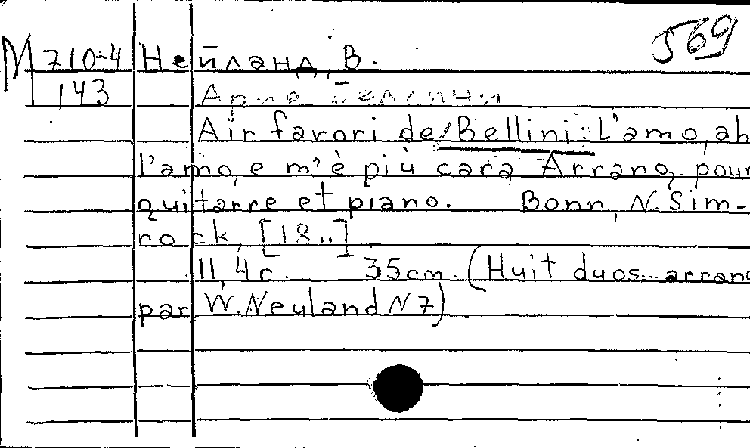 569
М 710-4 Нейланд, В.
143 Ария Беллини
Air favori de Bellini: L'amo, ah
l'amo, e m'è più cara Arrang. pour
guitarre et piano. Bonn, N. Sim-
rock, [18..]
11, 4с. 35cm. (Huit duos arrang
par W. Neuland N 7)